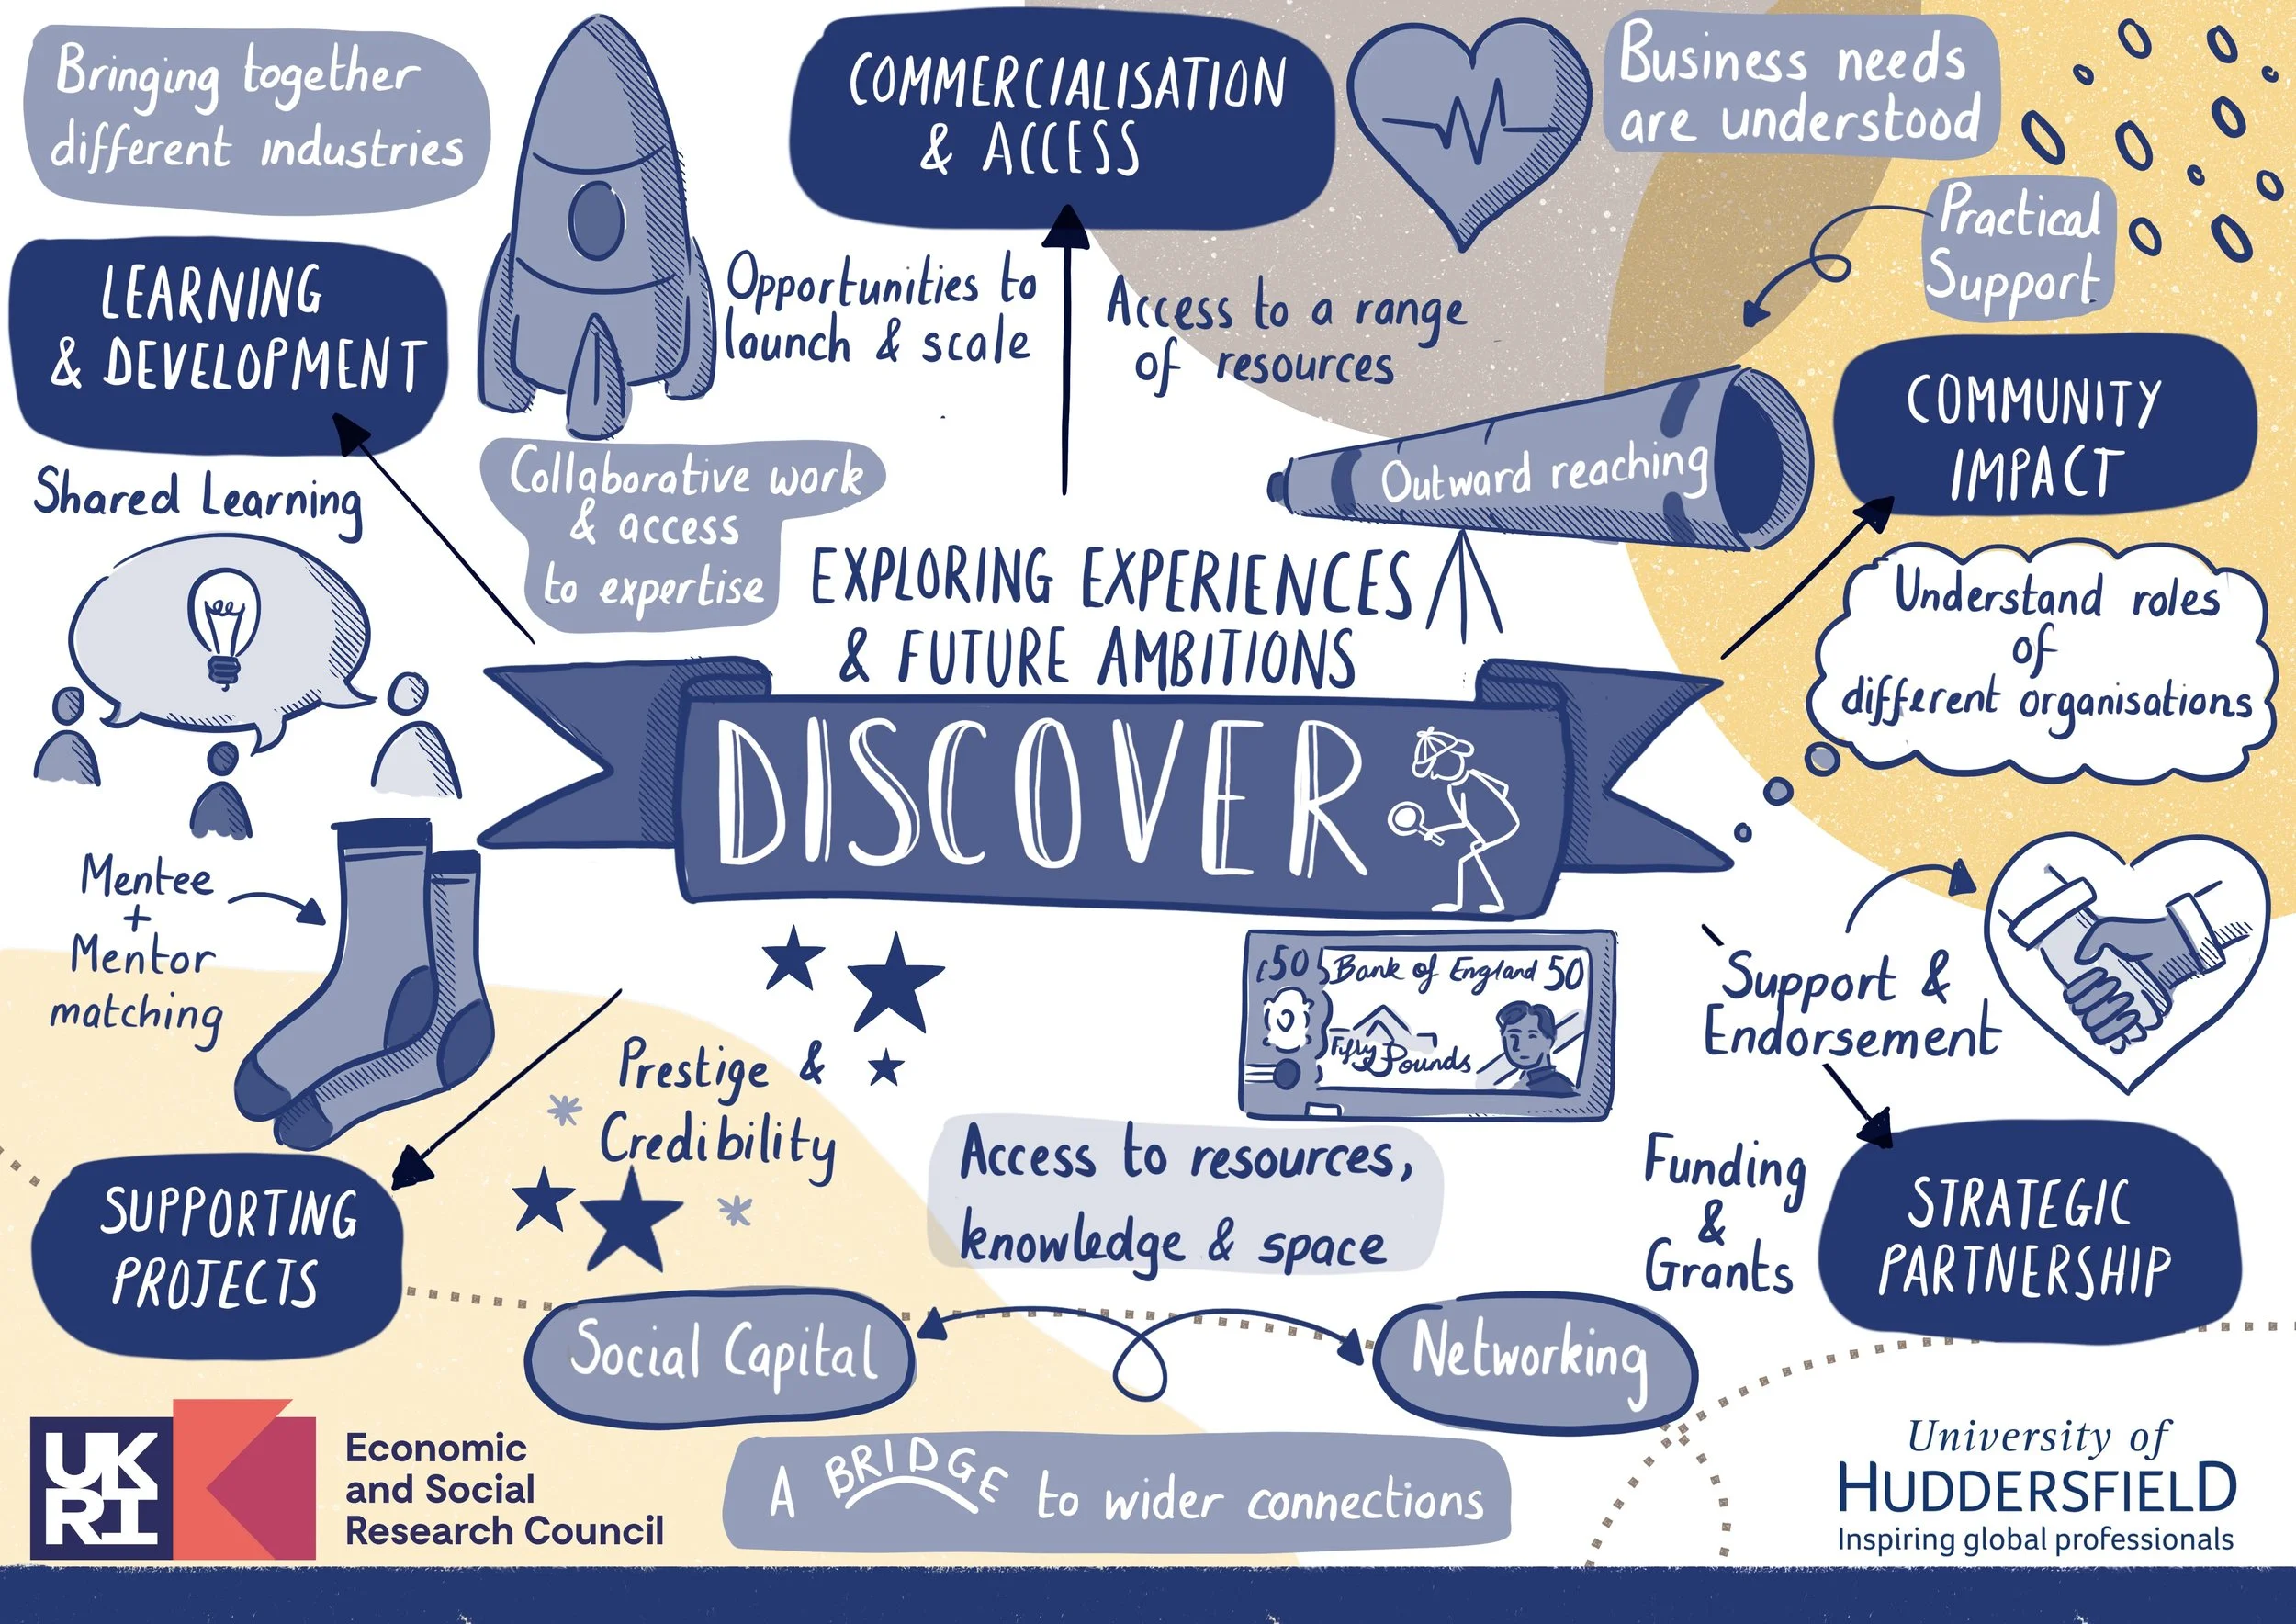 Bringing together
different industries
COMMERCIALISATION
& ACCESS
Business needs
are understood
Practical
Support
LEARNING
& DEVELOPMENT
Opportunities to
launch & scale
Access to a range
of resources
COMMUNITY
IMPACT
Outward reaching
Shared Learning
Collaborative work
& access
to expertise
EXPLORING EXPERIENCES
& FUTURE AMBITIONS
DISCOVER
Understand roles
of
different organisations
Mentee
+
Mentor
matching
£50 Bank of England 50
Fifty Pounds
Support &
Endorsement
Prestige &
Credibility
Access to resources,
knowledge & space
Funding
&
Grants
SUPPORTING
PROJECTS
STRATEGIC
PARTNERSHIP
Social Capital
Networking
A BRIDGE to wider connections
UK
RI
Economic
and Social
Research Council
University of
HUDDERSFIELD
Inspiring global professionals